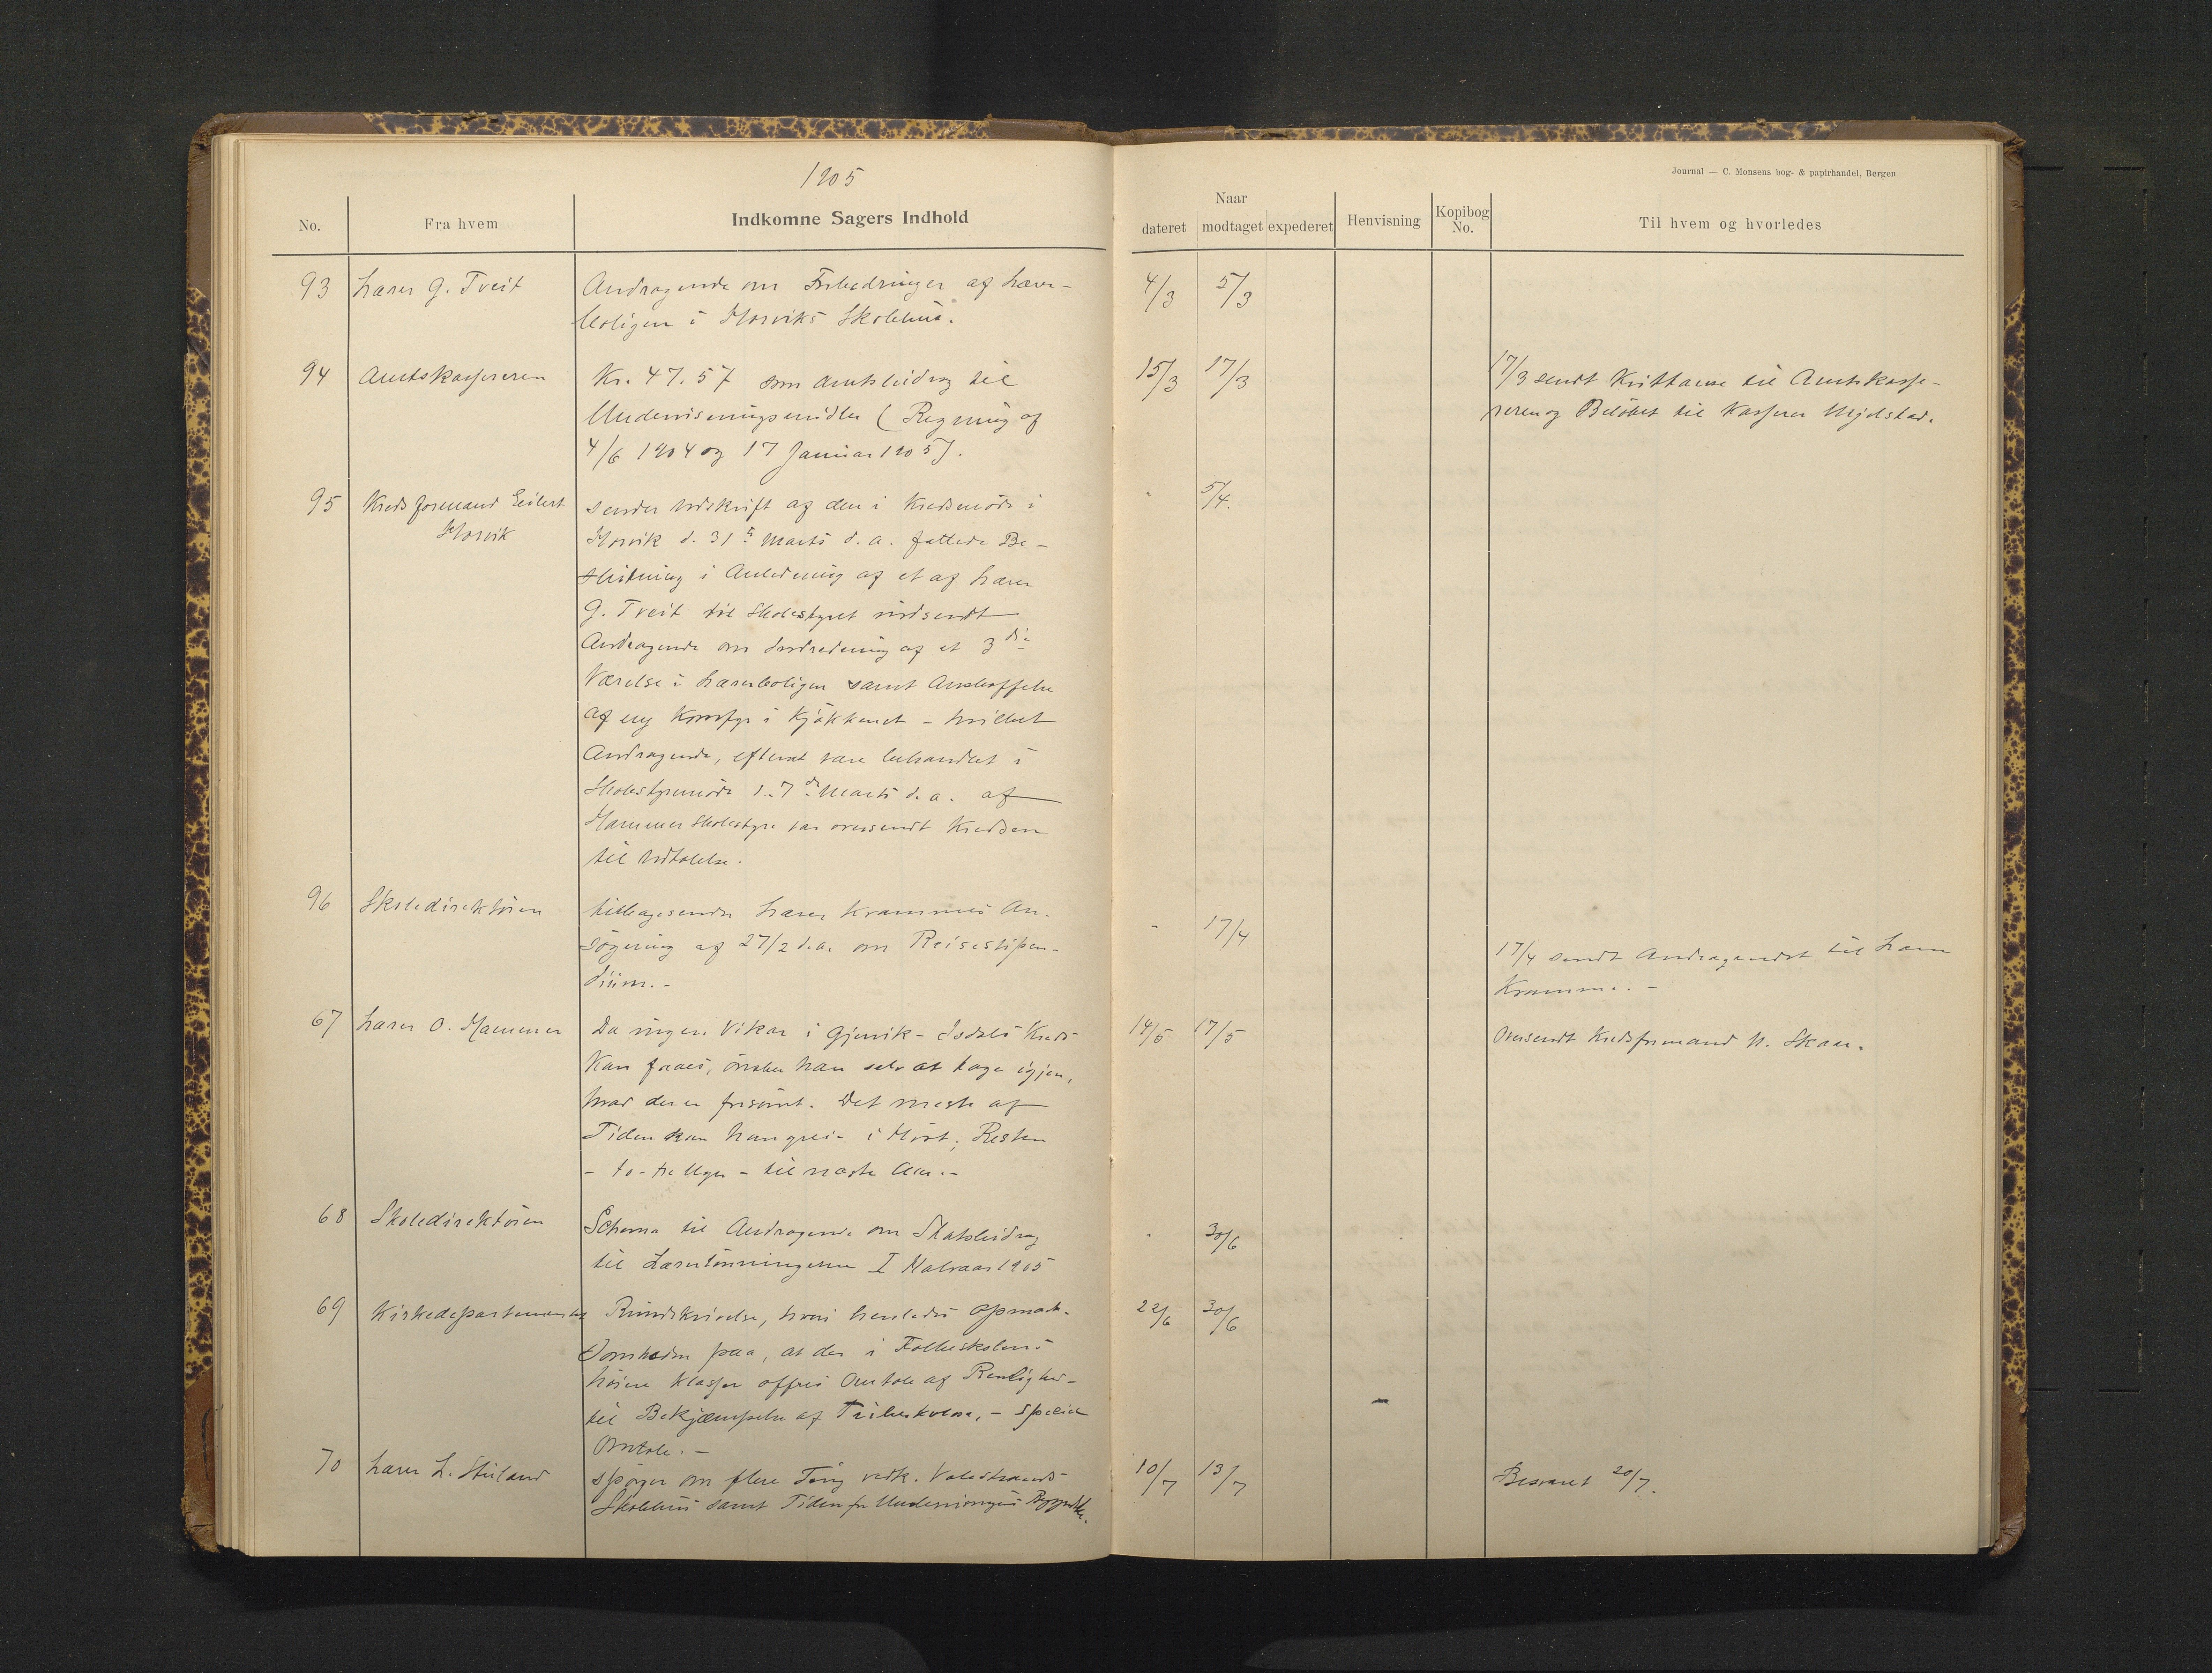 1905
Journal — C. Monsens bog- & papirhandel, Bergen
No.
Fra hvem
Indkomne Sagers Indhold
Naar
dateret
modtaget
expederet
Henvisning
Kopibog No.
Til hvem og hvorledes
93 Lærer G. Tveit Andragende om Forbedringer af Lærer- 4/3 5/3
boligen i Horviks Skolehus.
94 Amtskassereren Kr. 47.57 som Amtsbidrag til 15/3 17/3 17/3 sendt Kvittance til Amtskasse-
Undervisningsmidler (Regning af reren og Beløbet til Kasserer Mjelstad.
4/6 1904 og 17 Januar 1905).
95 Kredsformand Eilert sender Udskrift af den i Kredsmøde i " 5/4.
Horvik Horvik d. 31te Marts d. a. fattede Be-
slutning i Anledning af et af Lærer
G. Tveit til Skolestyret indsendt
Andragende om Indredning af et 3die
Værelse i Lærerboligen samt Anskaffelse
af ny Komfyr i Kjøkkenet - hvilket
Andragende, efterat være behandlet i
Skolestyremøde d. 7de Marts d. a. af
Hammer Skolestyre var oversendt Kredsen
til Udtalelse.
96 Skoledirektøren tilbagesender Lærer Krammes An- - 17/4
søgning af 27/2 d.a. om Reisestipen- 17/4 sendt Andragendet til Lærer
dium.- Kramme. -
67 Lærer O. Hammer Da ingen Vikar i Gjervik-Isdals Kreds 14/5 17/5 Oversendt Kredsformand N. Skaar.
kan faaes, ønsker han selv at tage igjen,
hvad der er forsømt. Det meste af
Tiden kan han greie i Høst; Resten
- to-tre Uger - til næste Aar.-
68 Skoledirektøren Schema til Andragende om Statsbidrag " 30/6
til Lærerlønningerne I Halvaar 1905
69 Kirkedepartementet Rundskrivelse, hvori henledes Opmærk- 22/6 30/6
somheden paa, at der i Folkeskolens
høiere Klasser offres Omtale af Renlighed-
til Bekjæmpelse af Tuberkulose, - speciel
Omtale. -
70 Lærer L. spørger om flere Ting vedk. Valestrands 10/7 13/7 Besvaret 20/7.
Skolehus samt Tiden for Undervisningens Begyndelse.